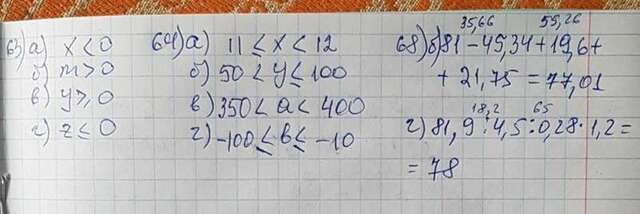 63) а) x < 0
б) m > 0
в) y ⩾ 0
г) z ≤ 0
64) а) 11 ≤ x < 12
б) 50 < y ≤ 100
в) 350 < a < 400
г) -100 ≤ b ≤ -10
35,66 55,26
68) б) 81 - 45,34 + 19,6 +
+ 21,75 = 77,01
18,2 65
г) 81,9 : 4,5 : 0,28 · 1,2 =
= 78